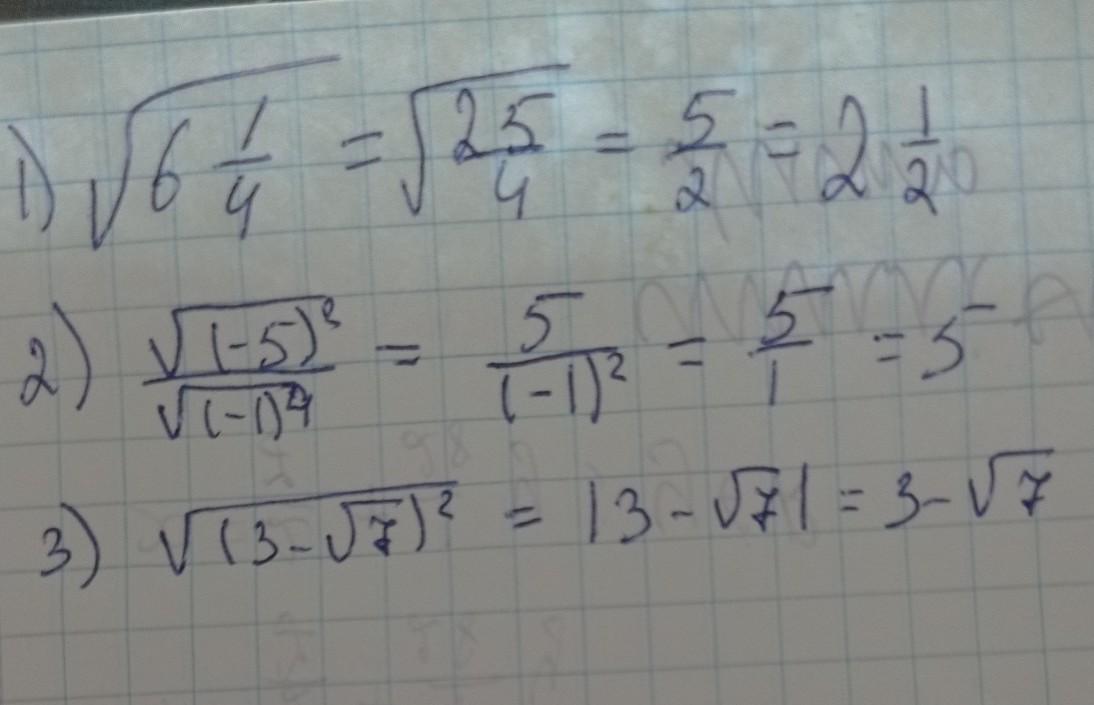 1) √(6 1/4) = √(25/4) = 5/2 = 2 1/2
2) √(-5)² / √(-1)⁴ = 5 / (-1)² = 5/1 = 5
3) √(3-√7)² = |3-√7| = 3-√7